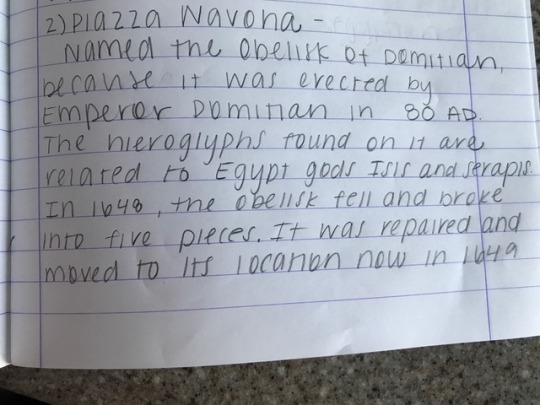 2) Piazza Navona -
Named the Obelisk of Domitian,
because it was erected by
Emperor Domitian in 80 AD.
The hieroglyphs found on it are
related to Egypt gods Isis and Serapis.
In 1648, the obelisk fell and broke
into five pieces. It was repaired and
moved to its location now in 1649